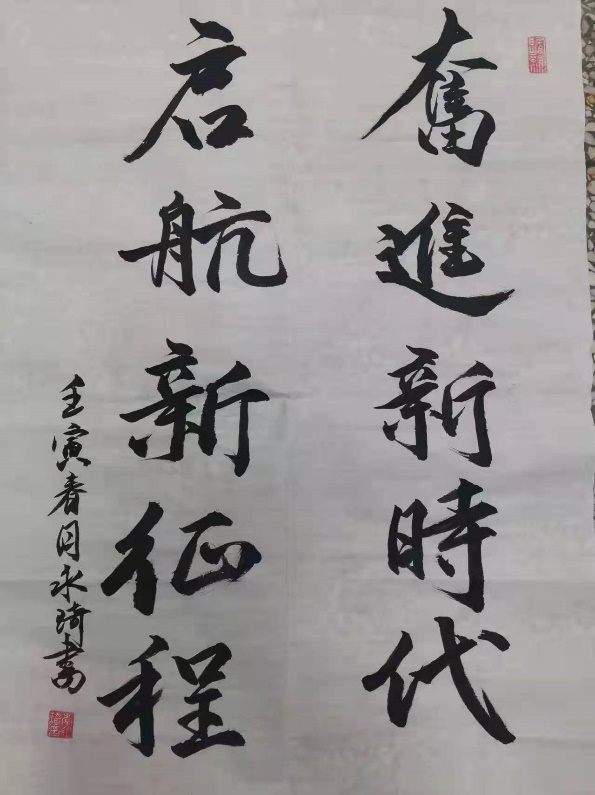 奮進新時代
启航新征程
壬寅春月永琦書